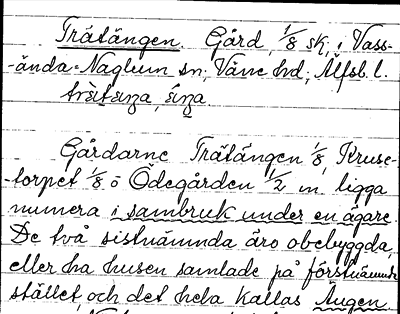 Trätängen. Gård, 1/8 sk, i Vass-
-ända-Naglum sn, Väne hd, Älfsb. l.
Gårdarne Trätängen 1/8, Kruse-
-torpet 1/8 o Ödegården 1/2 m, ligga
numera i sambruk under en ägare.
De två sistnämnda äro obebyggda,
eller ha husen samlade på förstnämnda
stället, och det hela kallas Ängen.